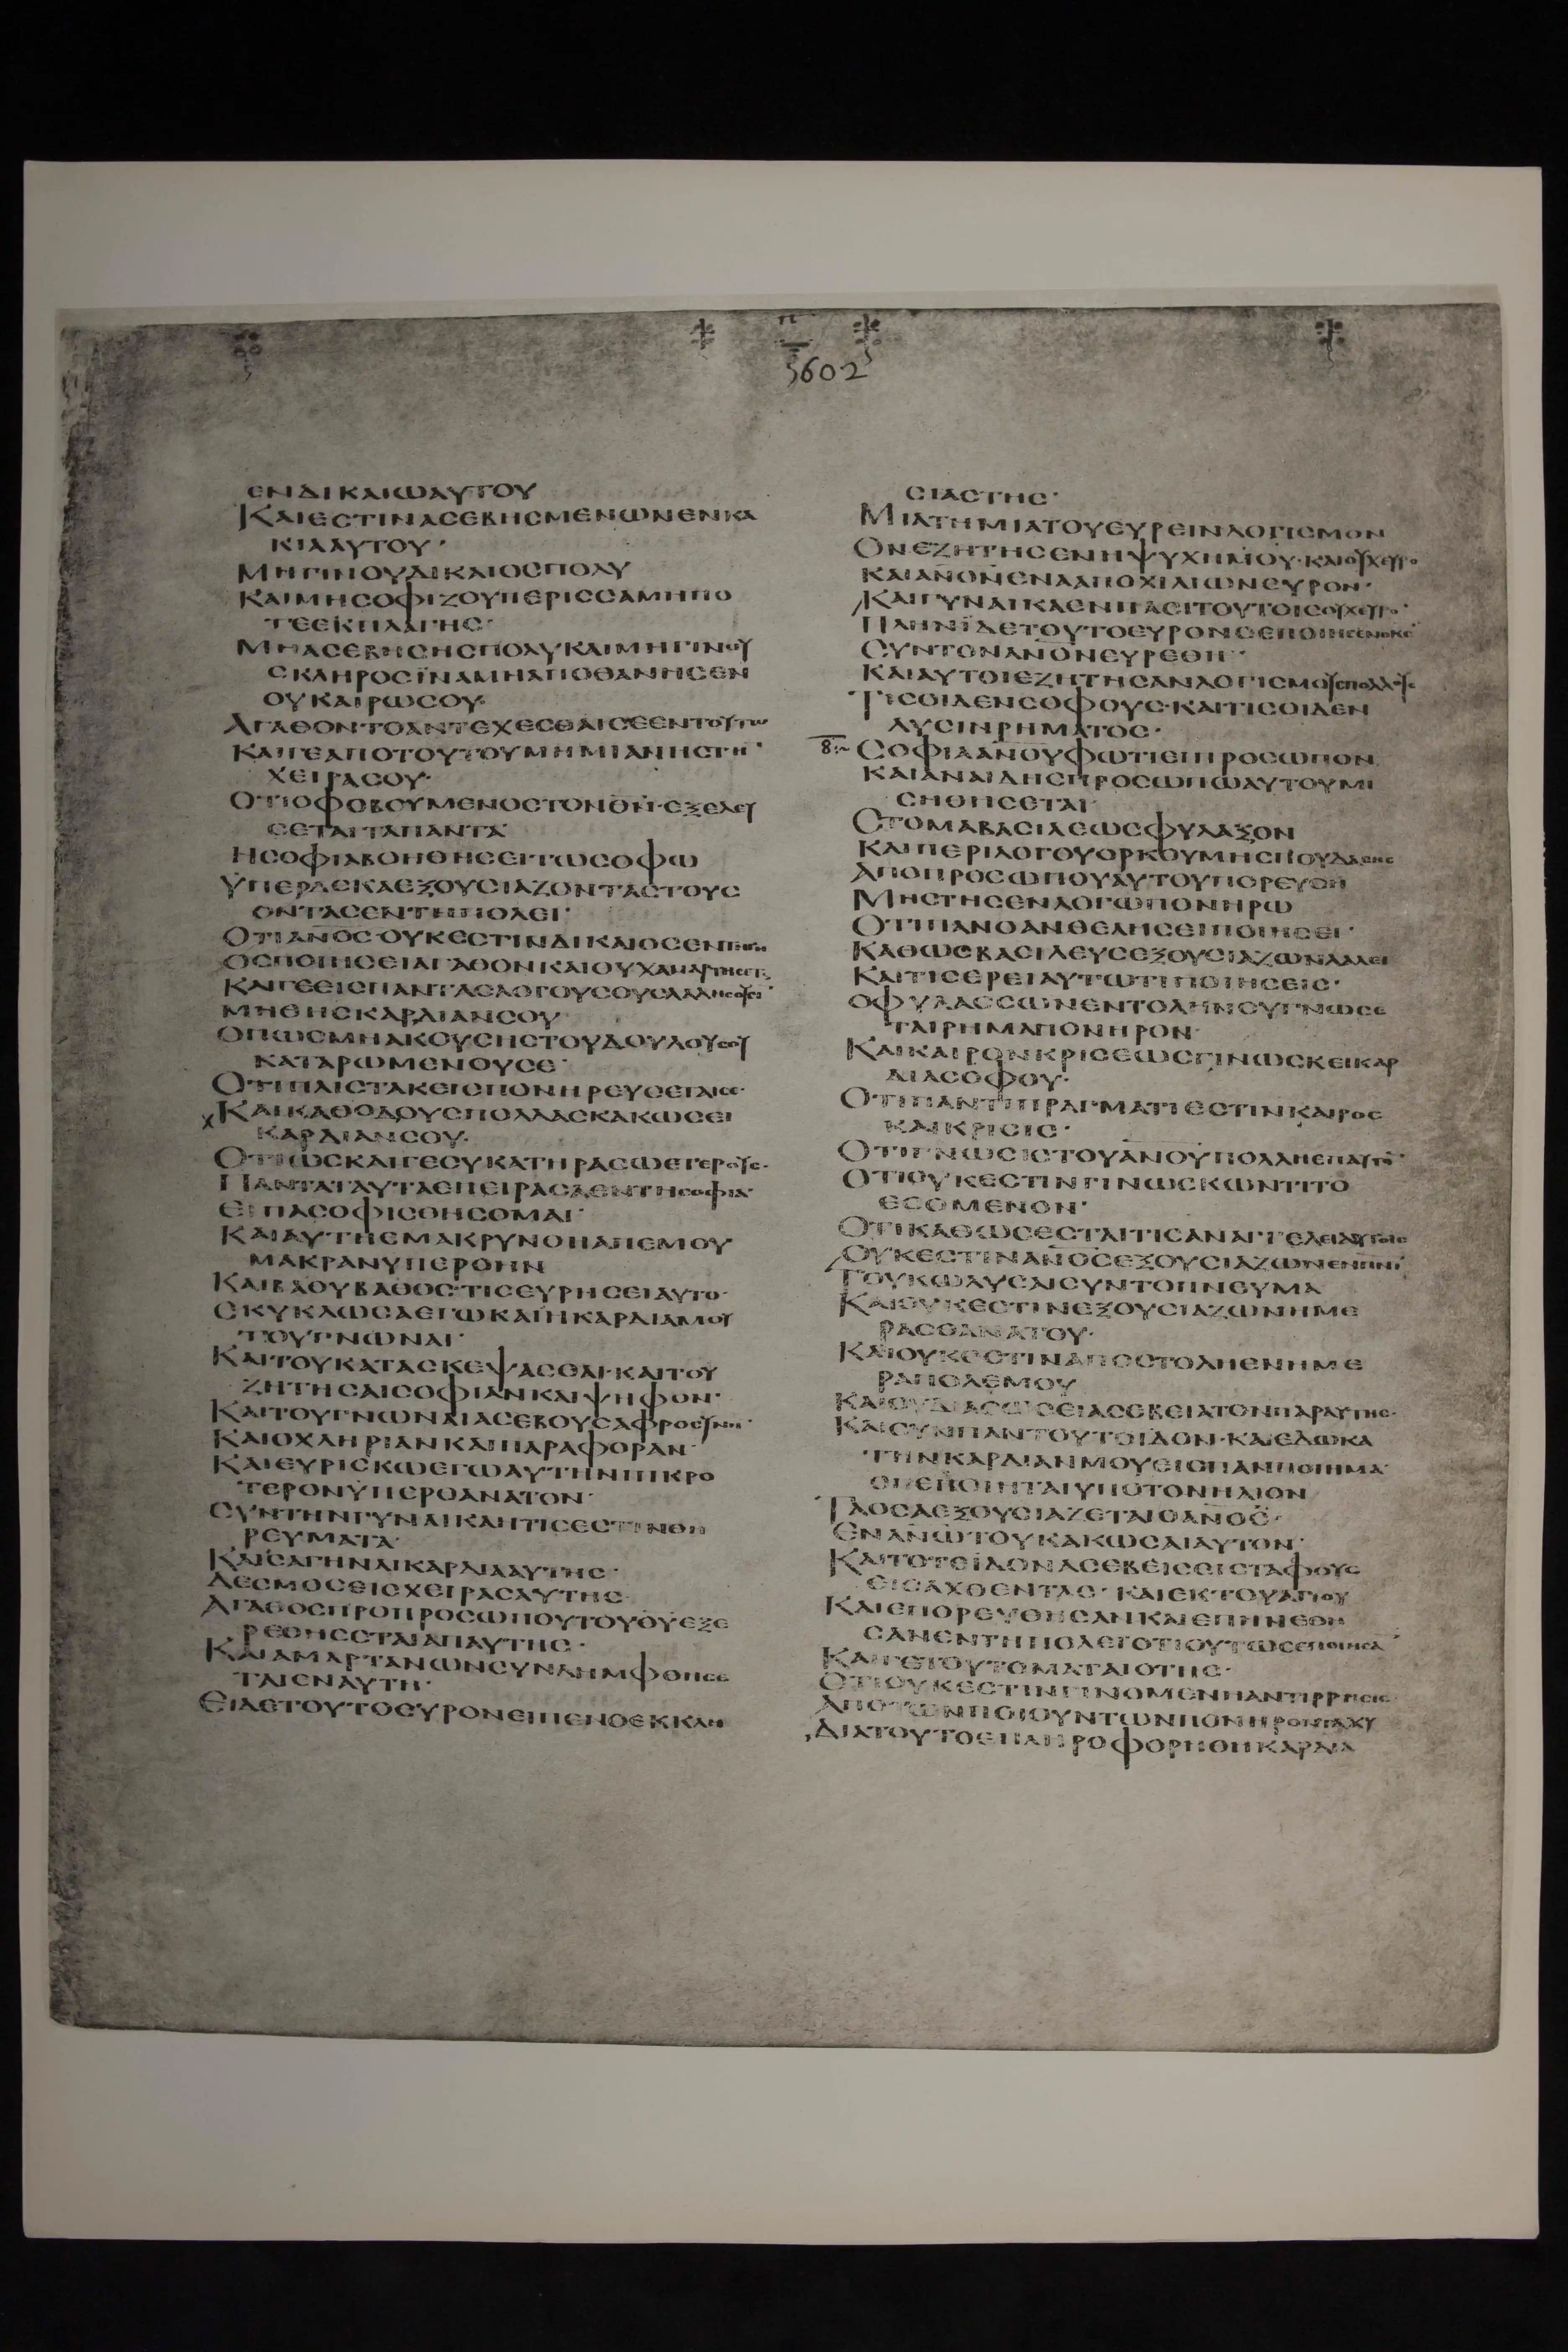 5602
ΕΝΔΙΚΑΙΩΑΥΤΟΥ
ΚΑΙΕCΤΙΝΑCΕΒΗCΜΕΝΩΝΕΝΚΑ
ΚΙΑΑΥΤΟΥ·
ΜΗΓΙΝΟΥΔΙΚΑΙΟCΠΟΛΥ
ΚΑΙΜΗCΟΦΙΖΟΥΠΕΡΙCCΑΜΗΠΟ
ΤΕΕΚΠΛΑΓΗC·
ΜΗΑCΕΒΗCΗCΠΟΛΥΚΑΙΜΗΓΙΝΟΥ
CΚΛΗΡΟCΪΝΑΜΗΑΠΟΘΑΝΗCΕΝ
ΟΥΚΑΙΡΩCΟΥ·
ΑΓΑΘΟΝΤΟΑΝΤΕΧΕCΘΑΙCΕΕΝΤΟΥΤΩ
ΚΑΙΓΕΑΠΟΤΟΥΤΟΥΜΗΜΙΑΝΗCΤΗ·
ΧΕΙΡΑCΟΥ·
ΟΤΙΟΦΟΒΟΥΜΕΝΟCΤΟΝΘΝ·ΕΞΕΛΕΥ
CΕΤΑΙΤΑΠΑΝΤΑ
ΗCΟΦΙΑΒΟΗΘΗCΕΙΤΩCΟΦΩ
ΥΠΕΡΔΕΚΑΕΞΟΥCΙΑΖΟΝΤΑCΤΟΥC
ΟΝΤΑCΕΝΤΗΠΟΛΕΙ·
ΟΤΙΑΝΟC·ΟΥΚΕCΤΙΝΔΙΚΑΙΟCΕΝ
ΟCΠΟΙΗCΕΙΑΓΑΘΟΝΚΑΙΟΥΧΑΜΑΡΤΗCΕΤ
ΚΑΙΓΕΕΙCΠΑΝΤΑCΛΟΓΟΥCΟΥCΛΑΛΗCΟΥCΙ·
ΜΗΘΗCΚΑΡΔΙΑΝCΟΥ
ΟΠΩCΜΗΑΚΟΥCΗCΤΟΥΔΟΥΛΟΥCΟΥ
ΚΑΤΑΡΩΜΕΝΟΥCΕ·
ΟΤΙΠΛΙCΤΑΚΕΙCΠΟΝΗΡΕΥCΕΤΑΙCΕ·
ΚΑΙΚΑΘΟΔΟΥCΠΟΛΛΑCΚΑΚΩCΕΙ
ΚΑΡΔΙΑΝCΟΥ·
ΟΤΙΩCΚΑΙΓΕCΥΚΑΤΗΡΑCΩΕΤΕΡΟΥC·
ΠΑΝΤΑΤΑΥΤΑΕΠΕΙΡΑCΑΕΝΤΗCΟΦΙΑ·
ΕΙΠΑCΟΦΙCΘΗCΟΜΑΙ·
ΚΑΙΑΥΤΗΕΜΑΚΡΥΝΘΗΑΠΕΜΟΥ
ΜΑΚΡΑΝΥΠΕΡΟΗΝ
ΚΑΙΒΑΘΥΒΑΘΟC·ΤΙCΕΥΡΗCΕΙΑΥΤΟ·
ΕΚΥΚΛΩCΑΕΓΩΚΑΙΗΚΑΡΔΙΑΜΟΥ
ΤΟΥΓΝΩΝΑΙ·
ΚΑΙΤΟΥΚΑΤΑCΚΕΨΑCΘΑΙ·ΚΑΙΤΟΥ
ΖΗΤΗCΑΙCΟΦΙΑΝΚΑΙΨΗΦΟΝ·
ΚΑΙΤΟΥΓΝΩΝΑΙΑCΕΒΟΥCΑΦΡΟCΥΝΗΝ·
ΚΑΙΟΧΛΗΡΙΑΝΚΑΙΠΑΡΑΦΟΡΑΝ·
ΚΑΙΕΥΡΙCΚΩΕΓΩΑΥΤΗΝΠΙΚΡΟ
ΤΕΡΟΝΫΠΕΡΘΑΝΑΤΟΝ·
CΥΝΤΗΝΓΥΝΑΙΚΑΗΤΙCΕCΤΙΝΘΗ
ΡΕΥΜΑΤΑ·
ΚΑΙCΑΓΗΝΑΙΚΑΡΔΙΑΑΥΤΗC·
ΔΕCΜΟCΕΙCΧΕΙΡΑCΑΥΤΗC·
ΑΓΑΘΟCΠΡΟΠΡΟCΩΠΟΥΤΟΥΘΥΕΞΕ
ΡΕΘΗCΕΤΑΙΑΠΑΥΤΗC·
ΚΑΙΑΜΑΡΤΑΝΩΝCΥΝΛΗΜΦΘΗCΕ
ΤΑΙΕΝΑΥΤΗ·
ΕΙΔΕΤΟΥΤΟΕΥΡΟΝΕΙΠΕΝΟΕΚΚΛΗ
CΙΑCΤΗC·
ΜΙΑΤΗΜΙΑΤΟΥΕΥΡΕΙΝΛΟΓΙCΜΟΝ
ΟΝΕΖΗΤΗCΕΝΗΨΥΧΗΜΟΥ·ΚΑΙΟΥΧΕΥΡΟ
ΚΑΙΑΝΟΝΕΝΑΑΠΟΧΙΛΙΩΝΕΥΡΟΝ·
ΚΑΙΓΥΝΑΙΚΑΕΝΠΑCΙΤΟΥΤΟΙCΟΥΧΕΥΡΟ·
ΠΛΗΝΪΔΕΤΟΥΤΟΕΥΡΟΝCΕΠΟΙΗCΕΝΟΚC
CΥΝΤΟΝΑΝΟΝΕΥΡΕΘΗ·
ΚΑΙΑΥΤΟΙΕΖΗΤΗCΑΝΛΟΓΙCΜΟΥCΠΟΛΛΟΥC
ΤΙCΟΙΔΕΝCΟΦΟΥC·ΚΑΙΤΙCΟΙΔΕΝ
ΛΥCΙΝΡΗΜΑΤΟC·
8 CΟΦΙΑΑΝΟΥΦΩΤΙΕΙΠΡΟCΩΠΟΝ
ΚΑΙΑΝΑΙΔΗCΠΡΟCΩΠΩΑΥΤΟΥΜΙ
CΗΘΗCΕΤΑΙ
CΤΟΜΑΒΑCΙΛΕΩCΦΥΛΑΞΟΝ
ΚΑΙΠΕΡΙΛΟΓΟΥΟΡΚΟΥΜΗCΠΟΥΔΑCΗC
ΑΠΟΠΡΟCΩΠΟΥΑΥΤΟΥΠΟΡΕΥCΗ
ΜΗCΤΗCΕΝΛΟΓΩΠΟΝΗΡΩ
ΟΤΙΠΑΝΟΑΝΘΕΛΗCΕΙΠΟΙΗCΕΙ·
ΚΑΘΩCΒΑCΙΛΕΥCΕΞΟΥCΙΑΖΩΝΛΑΛΕΙ
ΚΑΙΤΙCΕΡΕΙΑΥΤΩΤΙΠΟΙΗCΕΙC·
ΟΦΥΛΑCCΩΝΕΝΤΟΛΗΝΟΥΓΝΩCΕ
ΤΑΙΡΗΜΑΠΟΝΗΡΟΝ
ΚΑΙΚΑΙΡΟΝΚΡΙCΕΩCΓΙΝΩCΚΕΙΚΑΡ
ΔΙΑCΟΦΟΥ·
ΟΤΙΠΑΝΤΙΠΡΑΓΜΑΤΙΕCΤΙΝΚΑΙΡΟC
ΚΑΙΚΡΙCΙC·
ΟΤΙΓΝΩCΙCΤΟΥΑΝΟΥΠΟΛΛΗΕΠΑΥΤΟ·
ΟΤΙΟΥΚΕCΤΙΝΓΙΝΩCΚΩΝΤΙΤΟ
ΕCΟΜΕΝΟΝ·
ΟΤΙΚΑΘΩCΕCΤΑΙΤΙCΑΝΑΓΓΕΛΕΙΑΥΤΟΙC
ΟΥΚΕCΤΙΝΑΝΟCΕΞΟΥCΙΑΖΩΝΕΝΠΝΙ
ΤΟΥΚΩΛΥCΑΙCΥΝΤΟΠΝΕΥΜΑ
ΚΑΙΟΥΚΕCΤΙΝΕΞΟΥCΙΑΖΩΝΗΜΕ
ΡΑCΘΑΝΑΤΟΥ·
ΚΑΙΟΥΚΕCΤΙΝΑΠΟCΤΟΛΗΕΝΗΜΕ
ΡΑΠΟΛΕΜΟΥ
ΚΑΙΟΥΔΙΑCΩCΕΙΑCΕΒΕΙΑΤΟΝΠΑΡΑΥΤΗC·
ΚΑΙCΥΝΠΑΝΤΟΥΤΟΙΔΟΝ·ΚΑΙΕΔΩΚΑ
ΤΗΝΚΑΡΔΙΑΝΜΟΥΕΙCΠΑΝΠΟΙΗΜΑ
ΟΠΕΠΟΙΗΤΑΙΥΠΟΤΟΝΗΛΙΟΝ
ΤΑΟCΑΕΞΟΥCΙΑΖΕΤΑΙΟΑΝΟC·
ΕΝΑΝΩΤΟΥΚΑΚΩCΑΙΑΥΤΟΝ·
ΚΑΙΤΟΤΕΪΔΟΝΑCΕΒΕΙCΕΙCΤΑΦΟΥC
ΕΙCΑΧΘΕΝΤΑC·ΚΑΙΕΚΤΟΥΑΓΙΟΥ
ΚΑΙΕΠΟΡΕΥΘΗCΑΝΚΑΙΕΠΗΝΕΘΗ
CΑΝΕΝΤΗΠΟΛΕΙΟΤΙΟΥΤΩCΕΠΟΙΗCΑ
ΚΑΙΓΕΤΟΥΤΟΜΑΤΑΙΟΤΗC·
ΟΤΙΟΥΚΕCΤΙΝΓΙΝΟΜΕΝΗΑΝΤΙΡΡΗCΙC
ΑΠΟΤΩΝΠΟΙΟΥΝΤΩΝΠΟΝΗΡΟΝΤΑΧΥ
ΔΙΑΤΟΥΤΟΕΠΛΗΡΟΦΟΡΗΘΗΚΑΡΔΙΑ